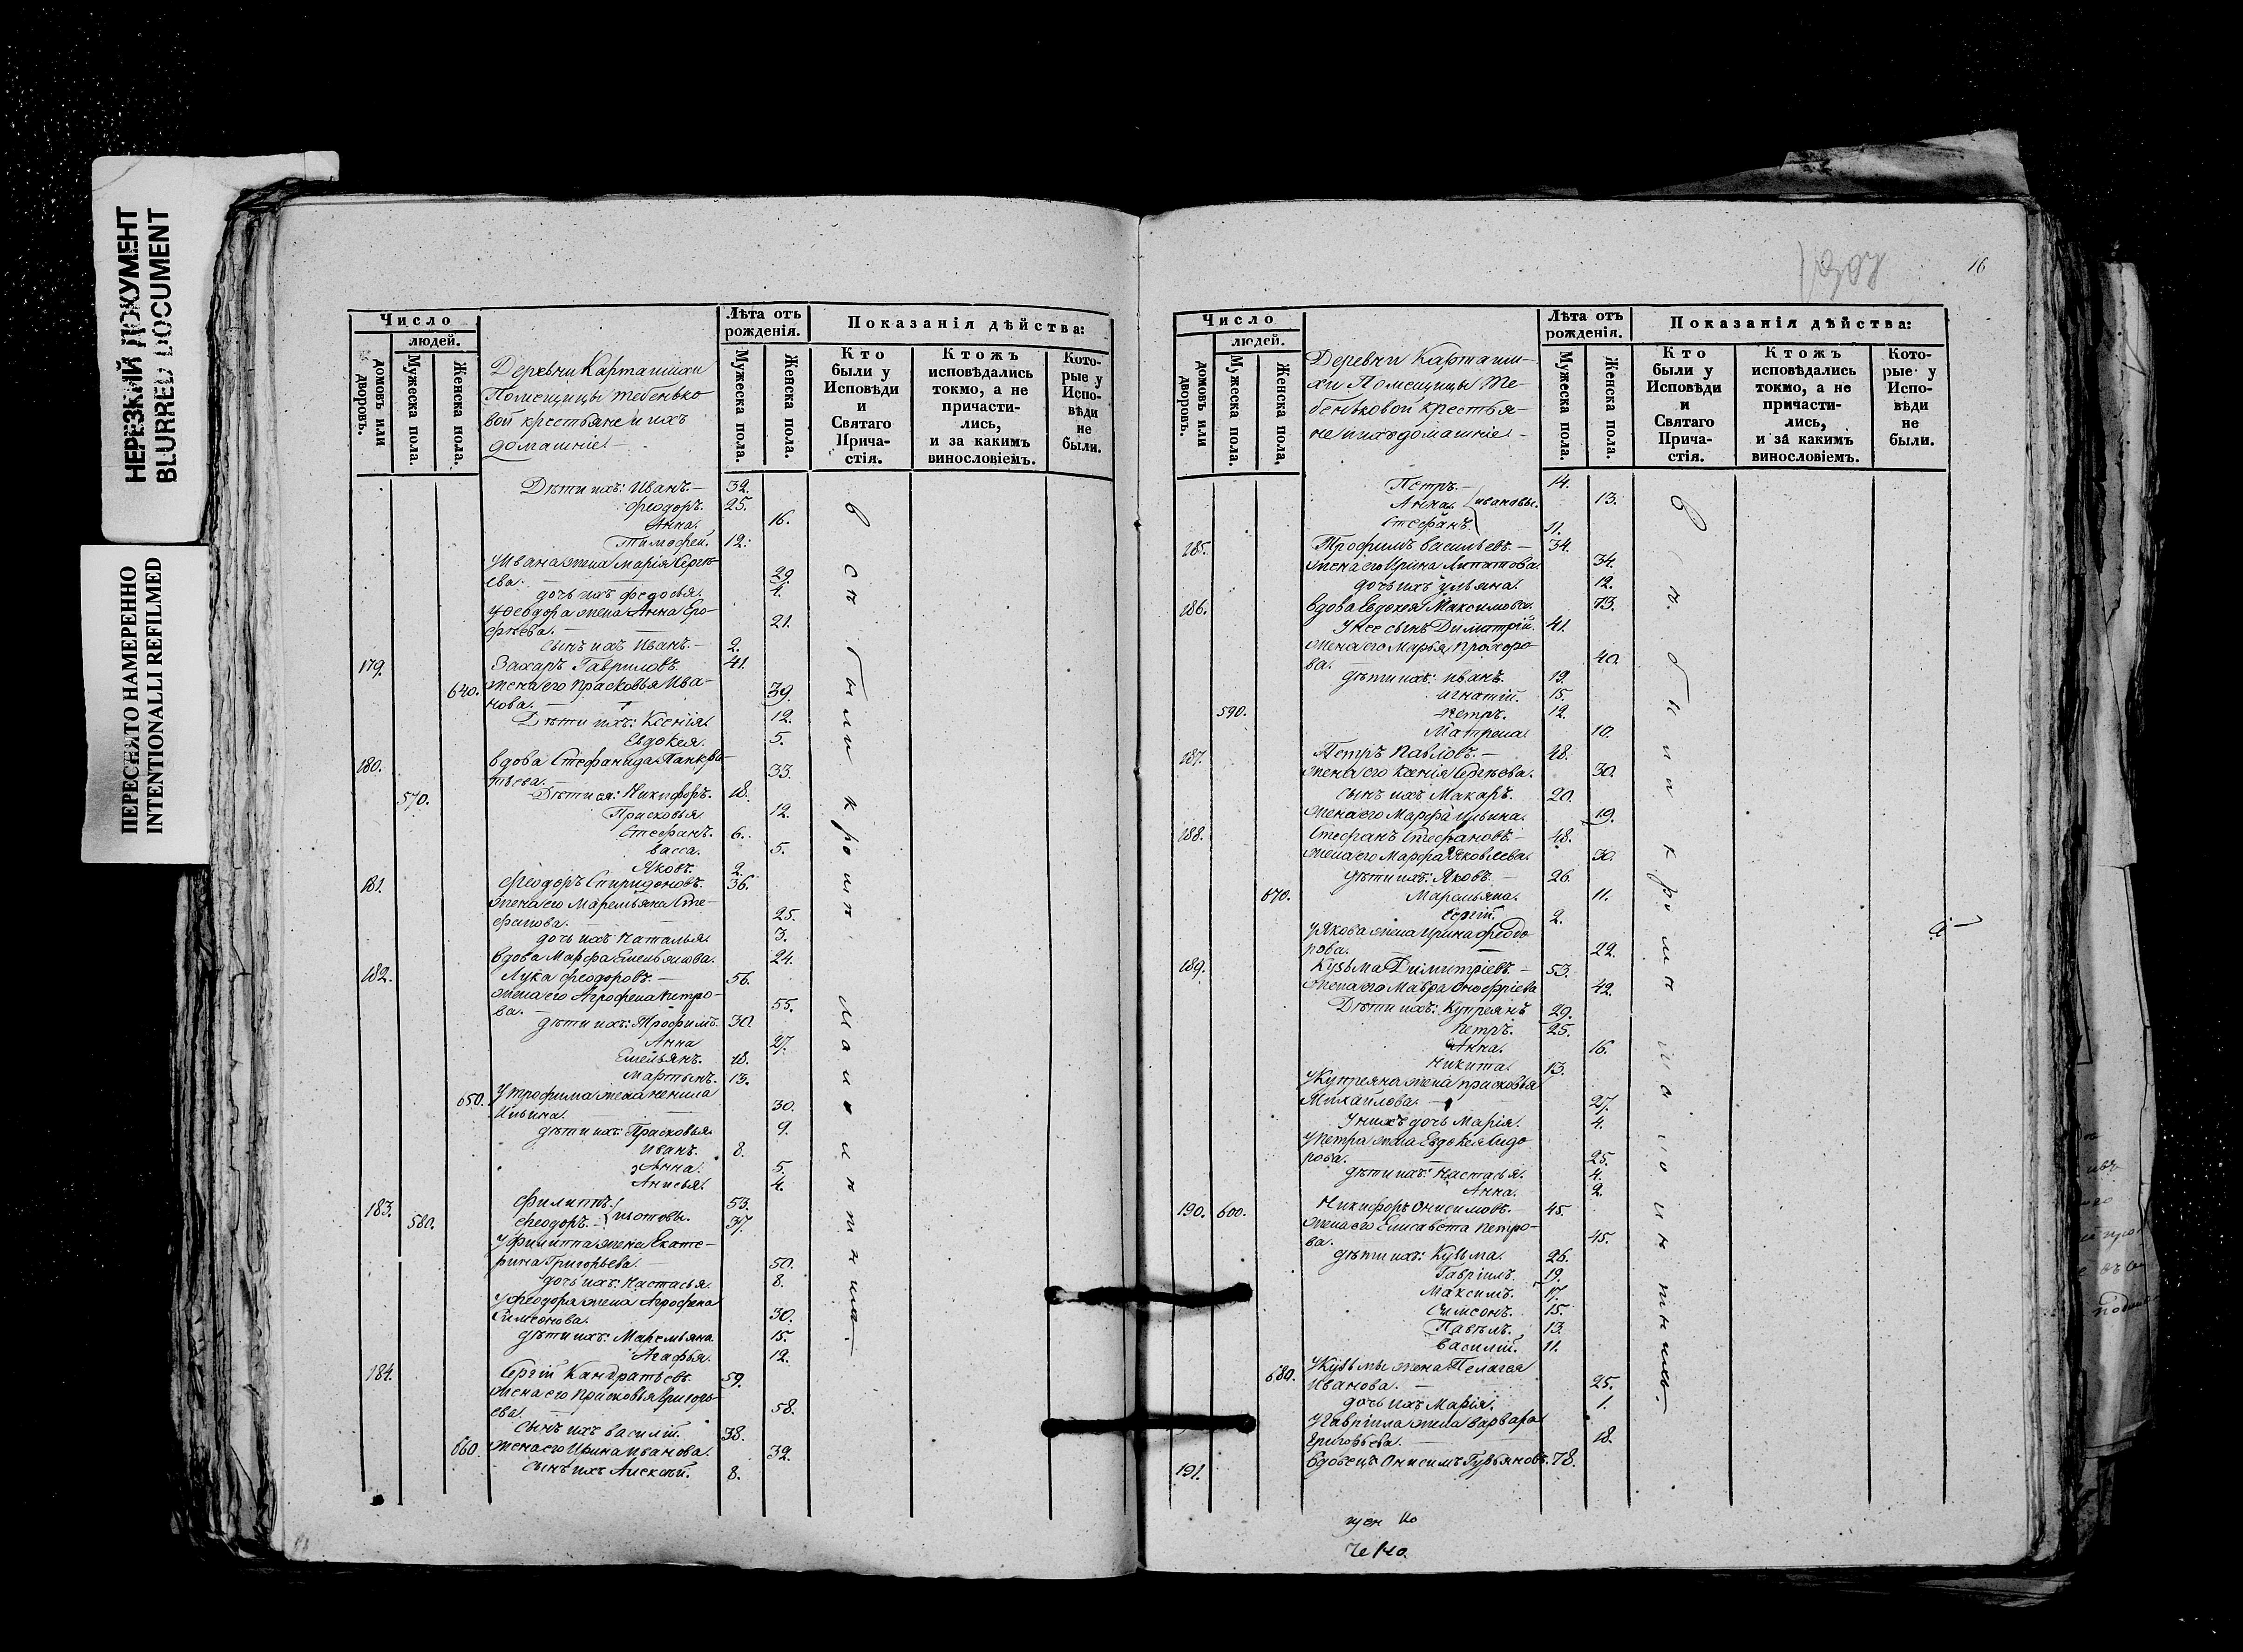 НЕРЕЗКИЙ ДОКУМЕНТ
BLURRED DOCUMENT
ПЕРЕСНЯТО НАМЕРЕННО
INTENTIONALLI REFILMED
Число
людей.
домовъ или дворовъ.
Мужеска пола.
Женска пола.
Деревни Карташихи
Помещицы Тебенько
вой крестьяне и ихъ
домашніе
Лѣта отъ рожденія.
Мужеска пола.
Женска пола.
Показанія дѣйства:
Кто были у Исповѣди и Святаго Прича-стія.
Ктожъ исповѣдались токмо, а не причасти-лись, и за какимъ винословіемъ.
Кото-рые у Испо-вѣди не были.
Дѣти ихъ: Иванъ. 32.
Феодоръ. 25.
Анна. 16.
Тимофей. 12.
У Ивана жена Марія Сергѣ
ева. 29
дочь ихъ Федосья. 1.
У Феодора жена Анна Еро-
фѣева. 21.
сынъ ихъ Иванъ. 2.
179. Захаръ Гавриловъ. 41.
640. жена его Прасковья Ива-
нова. 39
Дѣти ихъ: Ксенія. 12.
Евдокея. 5.
180. вдова Стефанида Панкра-
тьева. 33.
570. Дѣти ея: Никифоръ. 18.
Прасковья 12.
Стефанъ. 6.
Васса. 5.
Яковъ. 2.
181. Феодоръ Спиридоновъ. 36.
жена его Маремьяна Сте-
фанова. 25.
дочь ихъ Наталья. 3.
вдова Марфа Емельянова. 24.
182. Лука Феодоровъ. 56.
жена его Агрофена Петро-
ва. 55.
дѣти ихъ: Трофимъ. 30.
Анна 27.
Емельянъ. 18.
Мартынъ. 13.
650. У Трофима жена Ненила
Ильина. 30.
дѣти ихъ: Прасковья. 9.
Иванъ. 8.
Анна. 5.
Анисья. 4.
183. Филиппъ. 53.
580. Феодоръ. Изотовы. 37.
У Филиппа жена Екате-
рина Григорьева. 50.
дочь ихъ: Настасья. 8.
У Феодора жена Агрофена
Симеонова. 30.
дѣти ихъ: Маремьяна. 15.
Агафья. 12.
184. Сергій Кандратьевъ. 59.
жена его Прасковья Григорь-
ева. 58.
сынъ ихъ Василій. 38.
660. жена его Ирина Иванова. 32.
сынъ ихъ Алексѣй. 8.
всѣ были кромѣ малолѣтнихъ.
16
Число
людей.
домовъ или дворовъ.
Мужеска пола.
Женска пола.
Деревни Карташи-
хи Помещицы Те-
беньковой крестья-
не и ихъ домашніе
Лѣта отъ рожденія.
Мужеска пола.
Женска пола.
Показанія дѣйства:
Кто были у Исповѣди и Святаго Прича-стія.
Ктожъ исповѣдались токмо, а не причасти-лись, и за какимъ винословіемъ.
Кото-рые у Испо-вѣди не были.
Петръ. 14.
Анна. Ивановы. 13.
Стефанъ. 11.
185. Трофимъ Васильевъ. 34.
жена его Ирина Липатова. 34.
дочь ихъ Ульяна. 12.
186. вдова Евдокея Максимова. 73.
У нее сынъ Димитрій. 41.
жена его Марья Прохоро
ва. 40.
дѣти ихъ: Иванъ. 19.
Игнатій. 15.
590. Петръ. 12.
Матрена 10.
187. Петръ Павловъ. 48.
жена его Ксенія Сергѣева. 30.
сынъ ихъ Макаръ. 20.
жена его Марфа Ильина. 19.
188. Стефанъ Стефановъ. 48.
жена его Марфа Яковлева. 30.
дѣти ихъ: Яковъ. 26.
670. Маремьяна. 11.
Сергій. 2.
У Якова жена Ирина Феодо
рова. 22.
189. Кузьма Димитріевъ. 53.
жена его Мавра Онофріева 42.
Дѣти ихъ: Купреянъ 29.
Петръ. 25.
Анна. 16.
Никита. 13.
У Купреяна жена Прасковья
Михайлова. 27.
У нихъ дочь Марія. 4.
У Петра жена Евдокея Сидо
рова. 25.
дѣти ихъ: Настасья. 4.
Анна. 2.
190. 600. Никифоръ Онисимовъ. 45.
жена его Елисавета Петро-
ва. 45.
дѣти ихъ: Кузьма. 26.
Гавріилъ. 19.
Максимъ. 17.
Симеонъ. 15.
Павелъ. 13.
Василій. 11.
680. У Кузьмы жена Пелагея
Иванова. 25.
дочь ихъ Марія. 1.
У Гавріила жена Варвара
Григорьева. 18.
191. Вдовецъ Онисимъ Гурьяновъ. 78.
всѣ были кромѣ малолѣтнихъ.